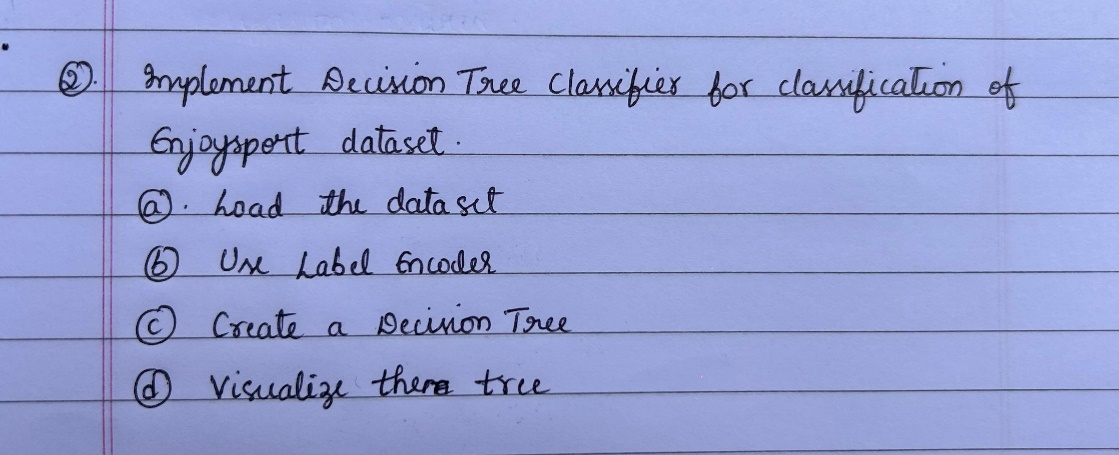 ②. Implement Decision Tree Classifier for classification of
Enjoysport dataset.
ⓐ. Load the data set
ⓑ Use Label Encoder
ⓒ Create a Decision Tree
ⓓ Visualize there tree